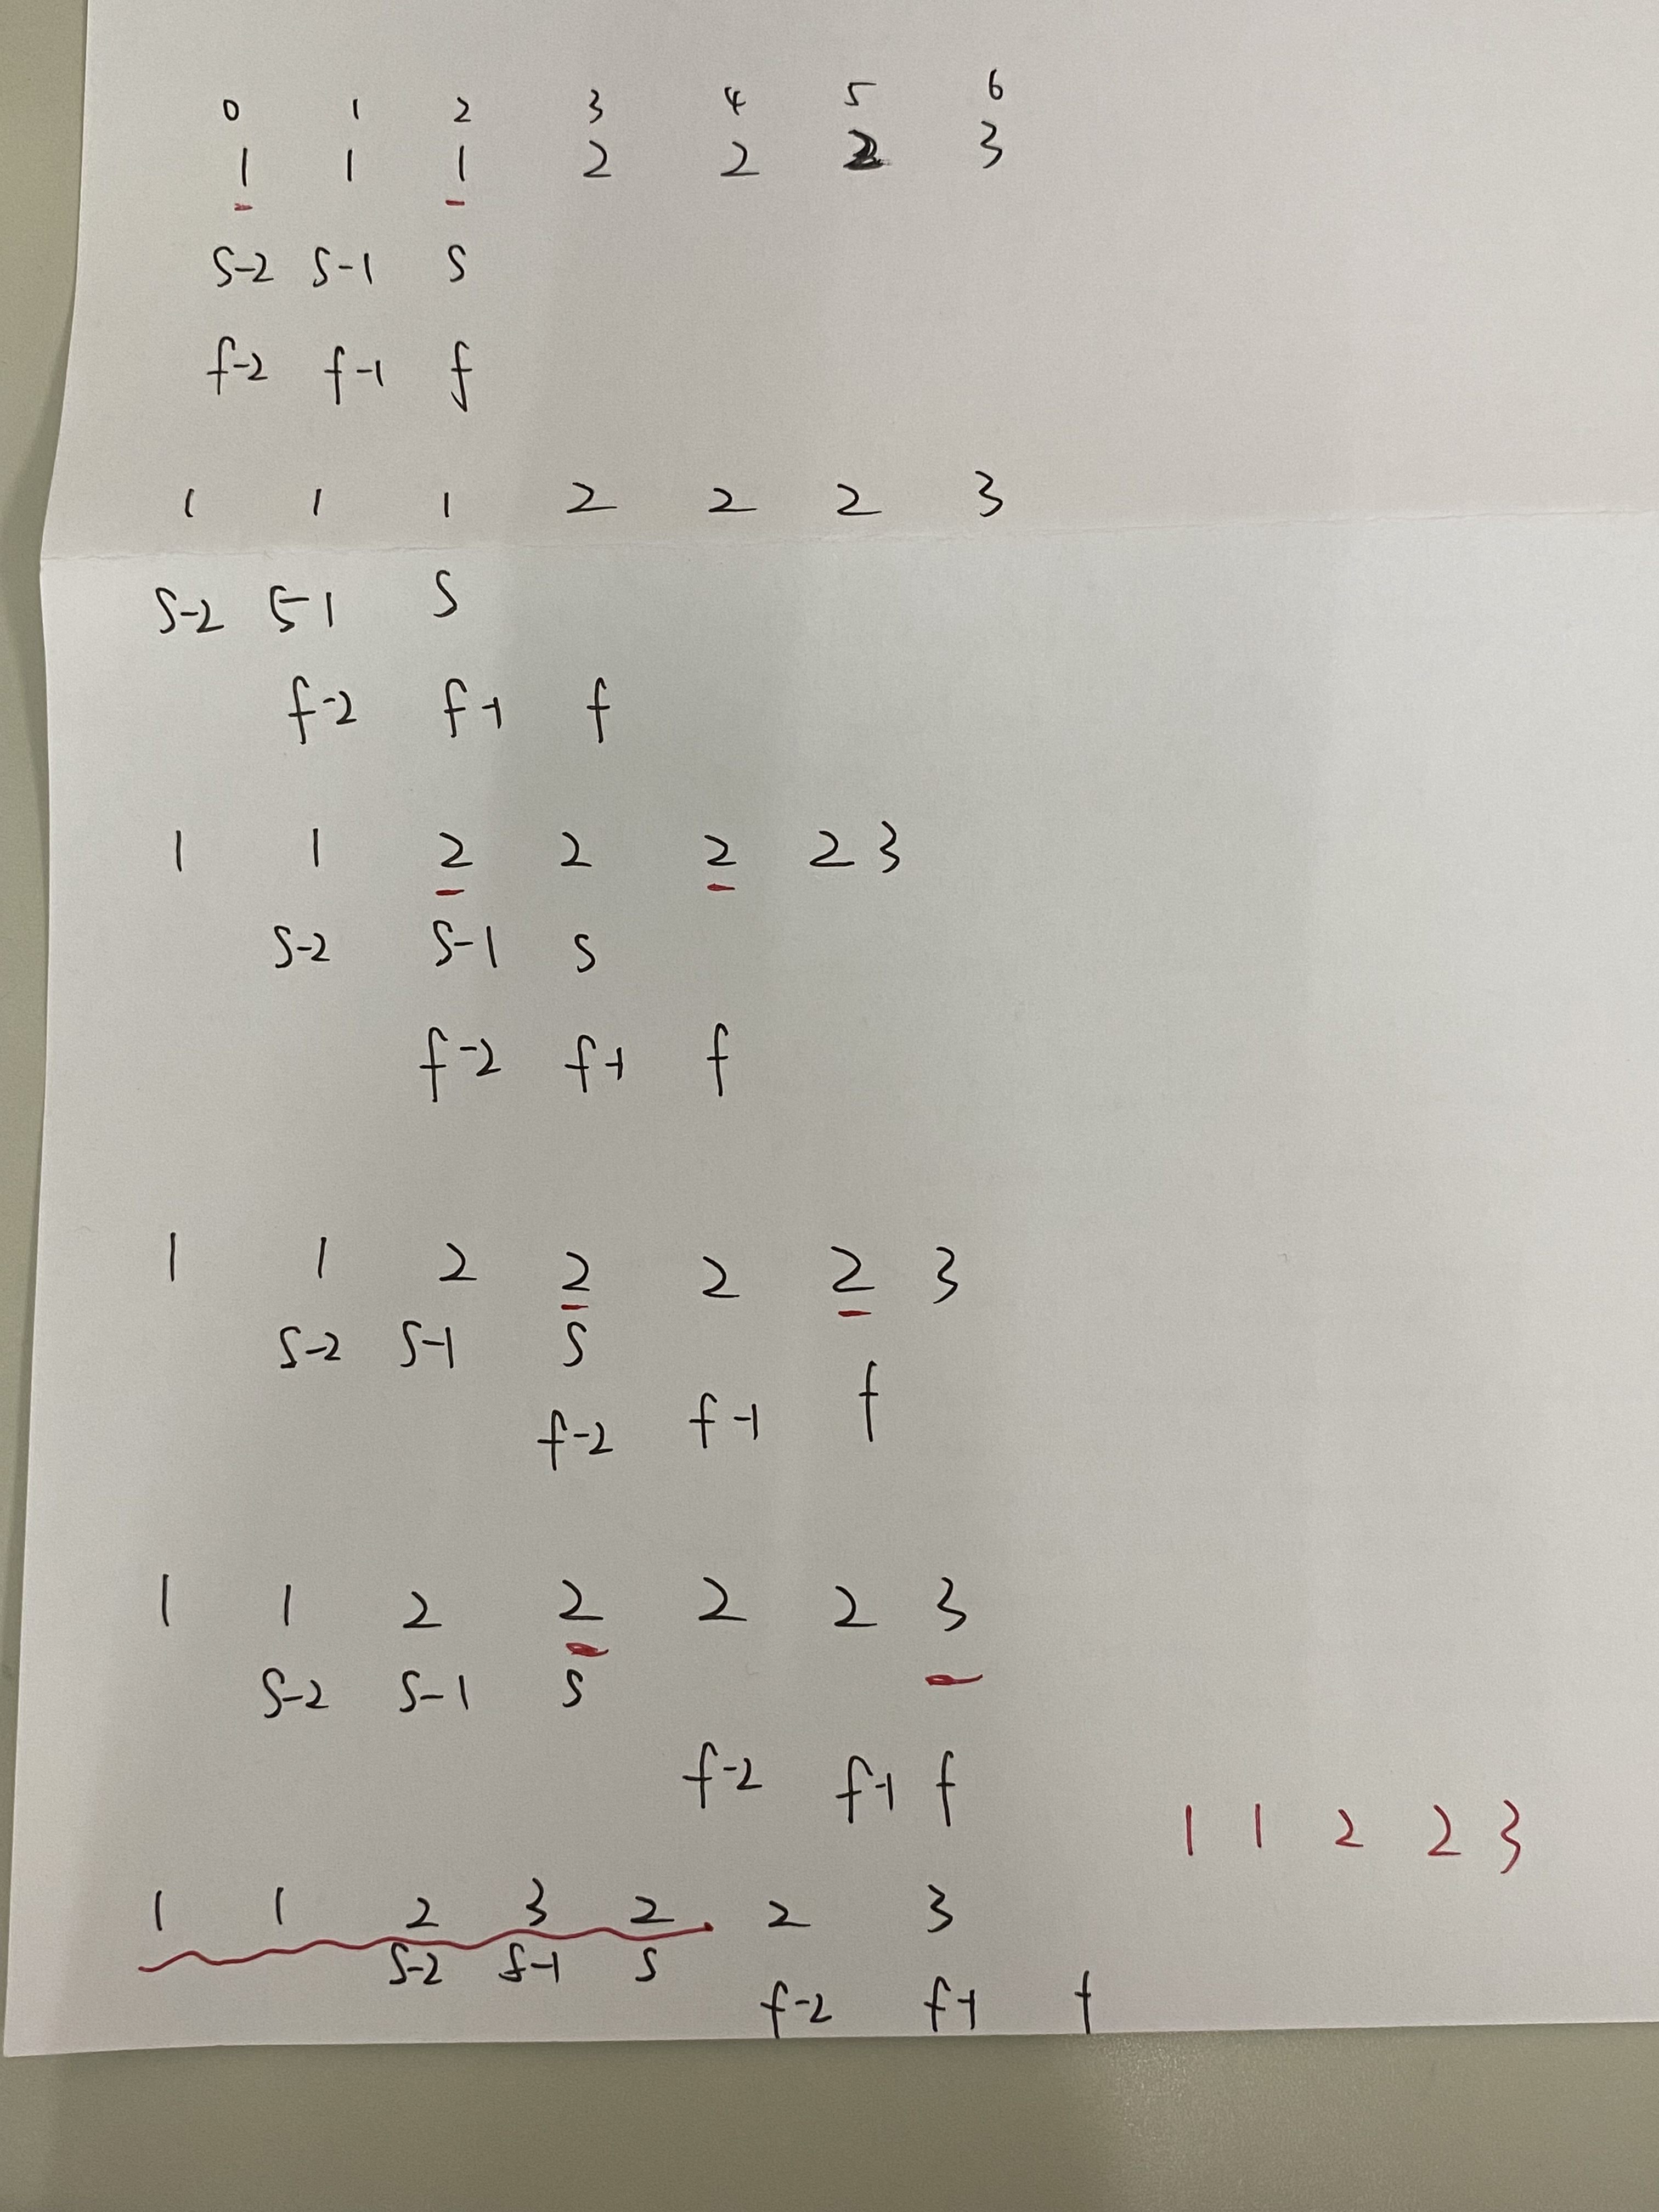 0 1 2 3 4 5 6
1 1 1 2 2 2 3
S-2 S-1 S
f-2 f-1 f
1 1 1 2 2 2 3
S-2 S-1 S
f-2 f-1 f
1 1 2 2 2 2 3
S-2 S-1 S
f-2 f-1 f
1 1 2 2 2 2 3
S-2 S-1 S
f-2 f-1 f
1 1 2 2 2 2 3
S-2 S-1 S
f-2 f-1 f
1 1 2 2 3
1 1 2 3 2 2 3
S-2 S-1 S
f-2 f-1 f